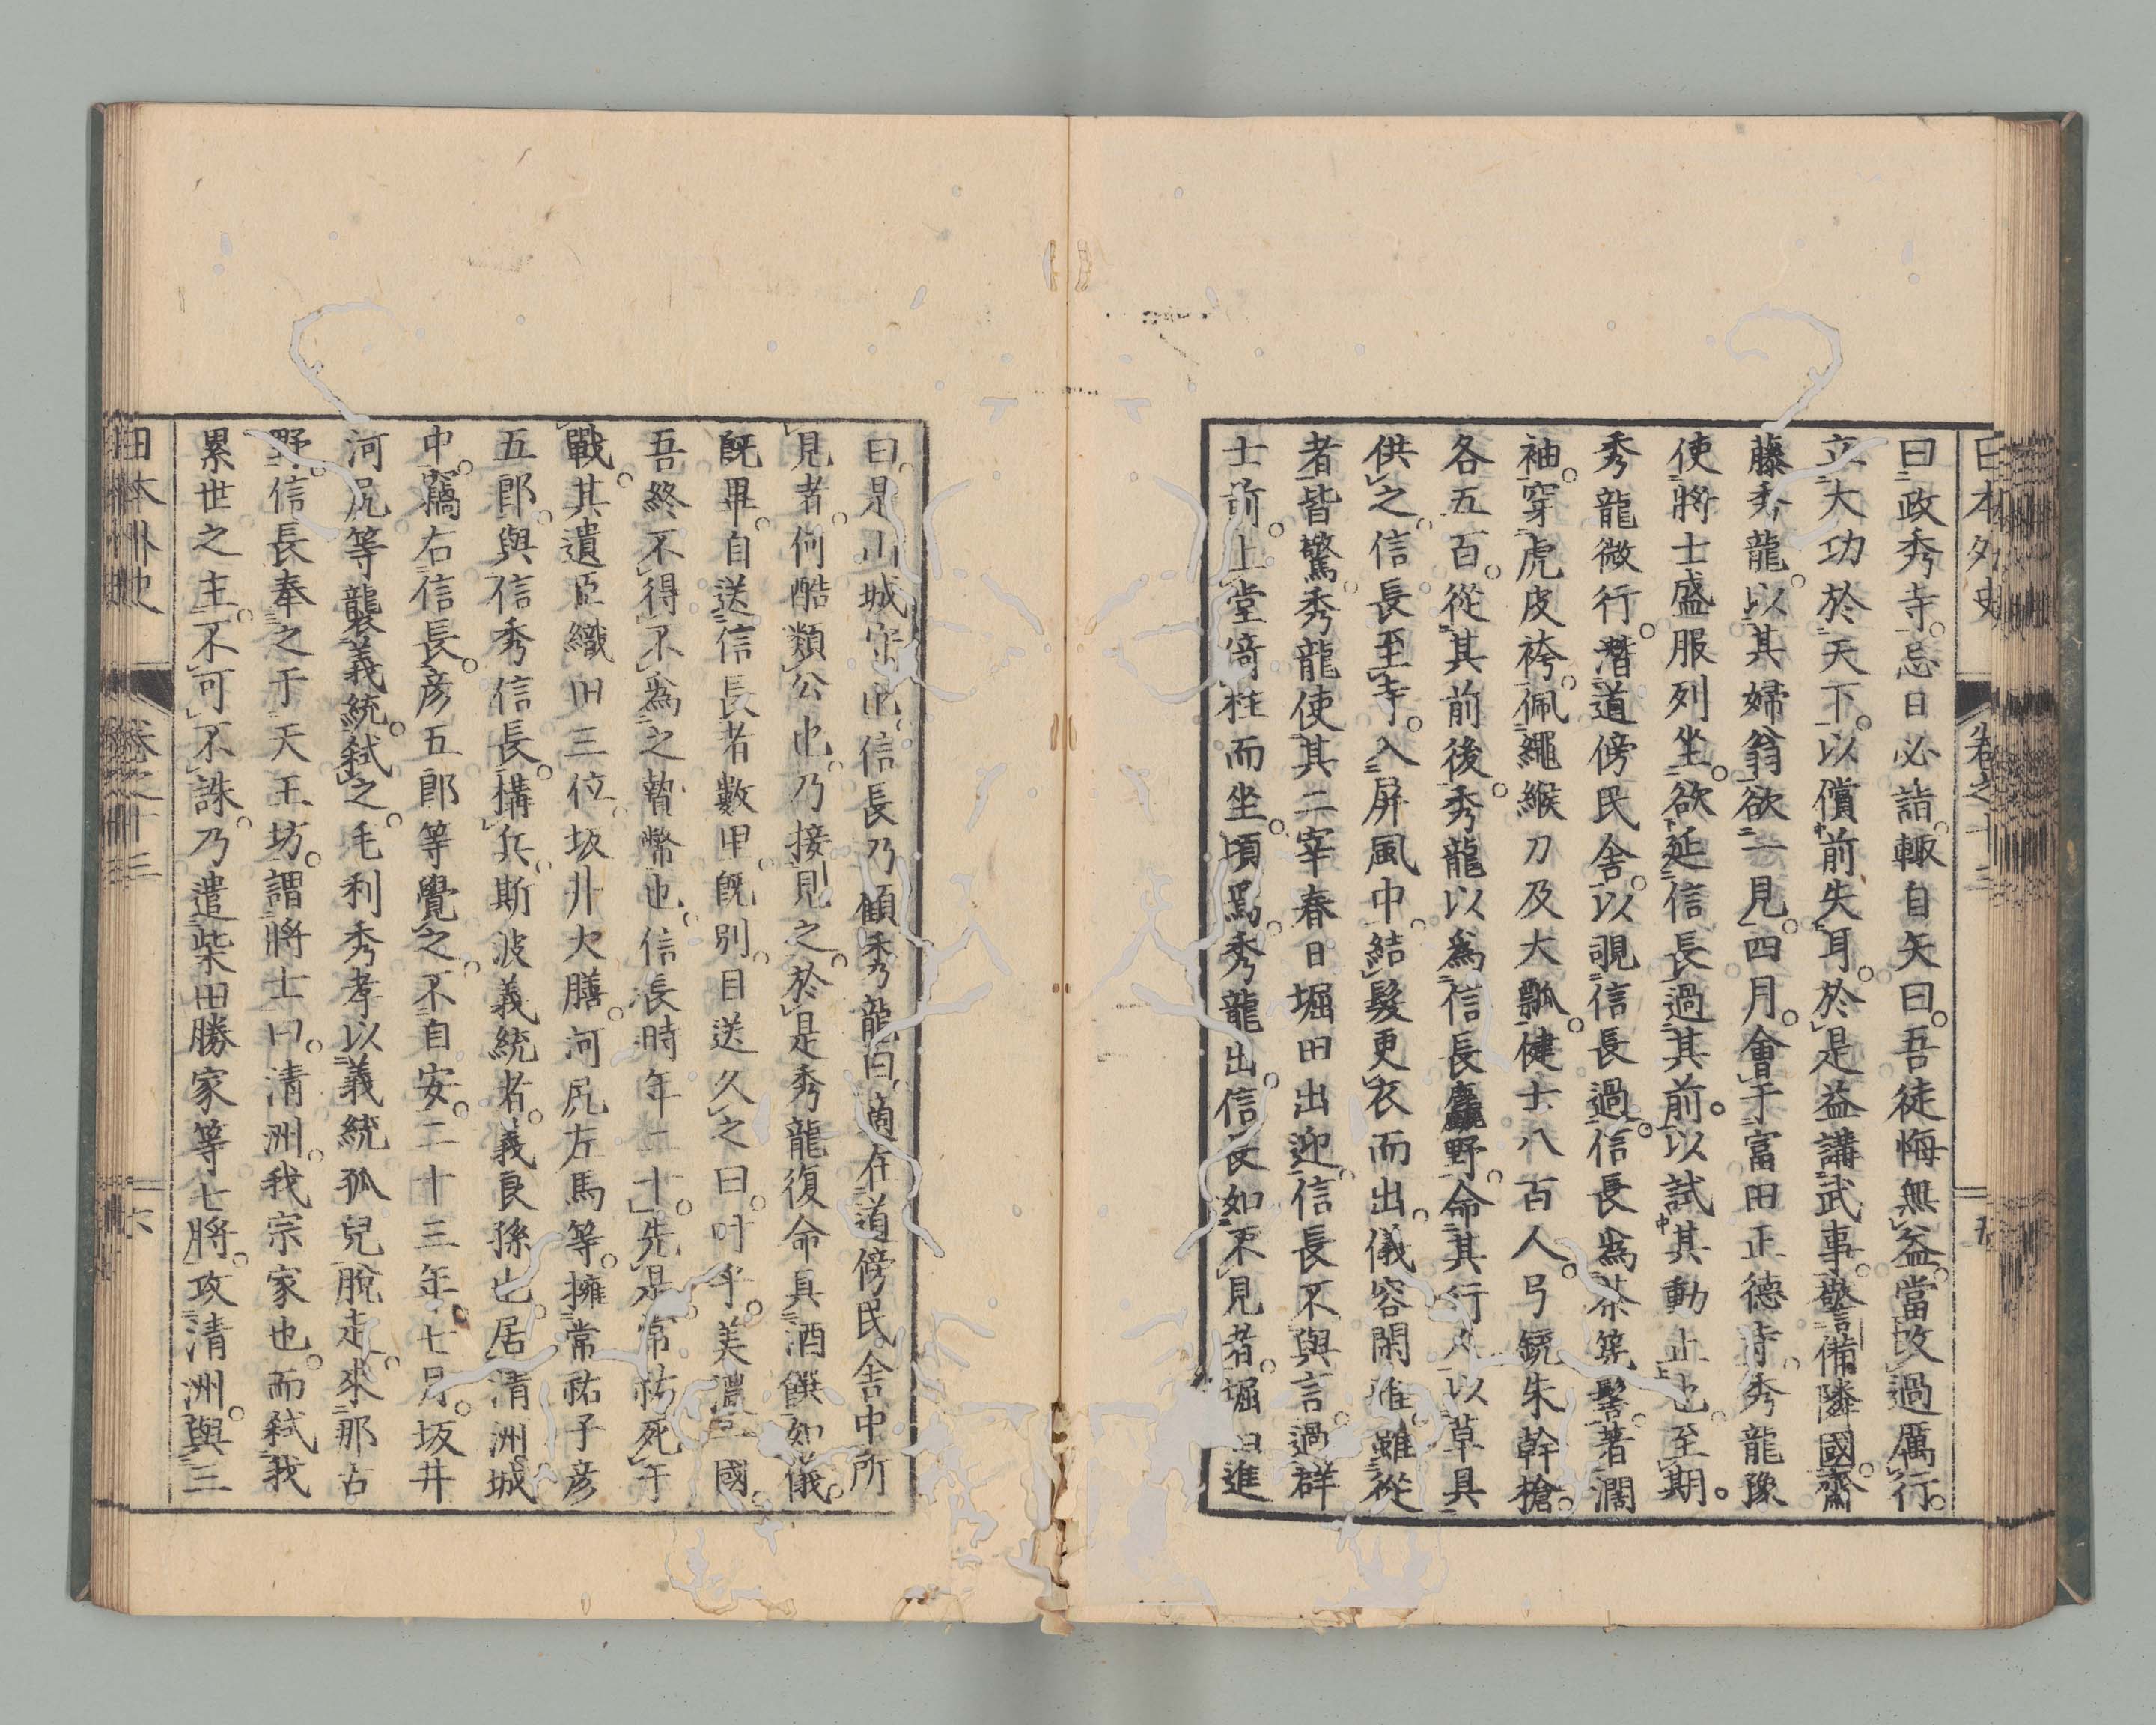 日本外史 卷之十三 五
曰政秀寺。忌日必詣。輙自矢曰。吾徒悔無益。當改過厲行。
立大功於天下。以償前失耳。於是益講武事。警備隣國。齋
藤秀龍。以其婦翁欲一見。四月。會于富田正德寺。秀龍豫
使將士盛服列坐。欲延信長過其前。以試其動止也。至期。
秀龍微行。潛道傍民舍。以覗信長過。信長爲茶筅髻。著濶
袖。穿虎皮袴。佩繩緱刀及大瓢。健士八百人。弓銃朱幹槍。
各五百。從其前後。秀龍以爲信長麤野。命其行人以草具
供之。信長至寺。入屏風中。結髮更衣而出。儀容閑雅。雖從
者皆驚。秀龍使其二宰春日堀田出迎。信長不與言。過群
士前。上堂倚柱而坐。頃焉。秀龍出。信長如不見者。堀田進
曰。是山城守也。信長乃顧秀龍曰。適在道傍民舍中所
見者。何酷類公也。乃接見之。於是秀龍復命具酒饌如儀。
既畢。自送信長者數里。既別。目送久之曰。吁乎。美濃國。
吾終不得不爲之贄幣也。信長時年二十。先是常祐死于
戰。其遺臣織田三位。坂井大膳。河尻左馬等。擁常祐子彦
五郎。與信秀信長構兵。斯波義統者。義良孫也。居清洲城
中。竊右信長。彦五郎等覺之。不自安。二十三年。七月。坂井
河尻等襲義統。弑之。毛利秀孝以義統孤兒脫走。來那古
野。信長奉之于天王坊。謂將士曰。清洲。我宗家也。而弑我
累世之主。不可不誅。乃遣柴田勝家等七將。攻清洲。與三
日本外史 卷之十三 六